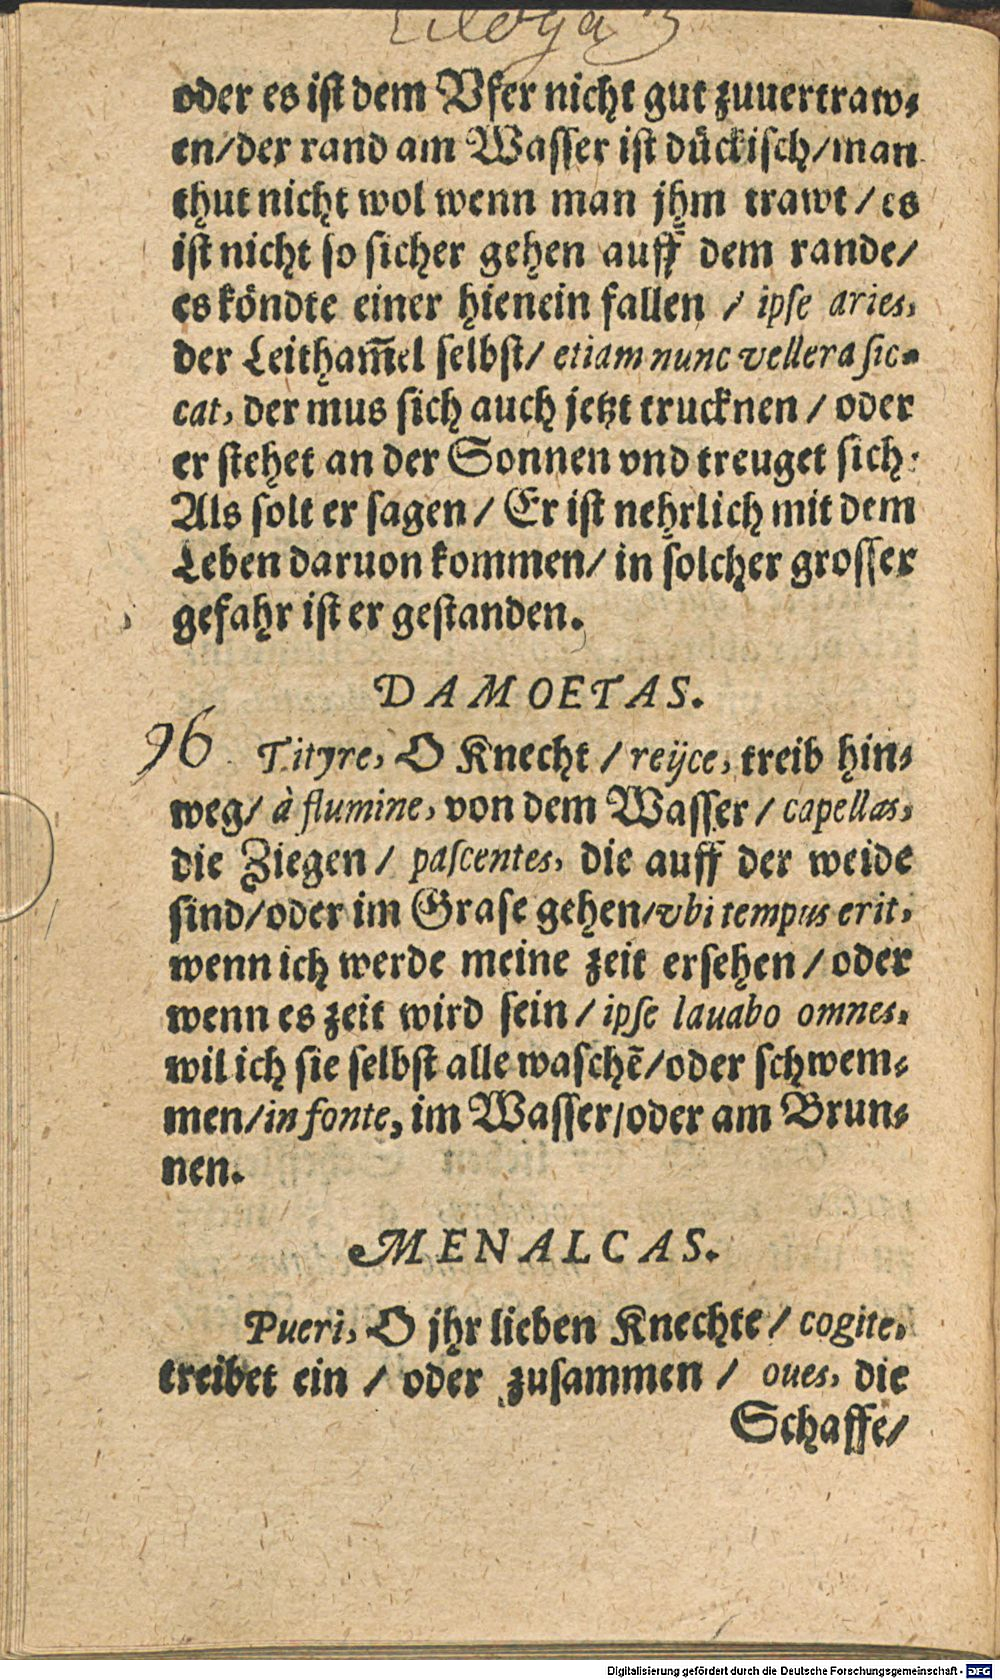 Ecloga 3
oder es ist dem Vfer nicht gut zuuertraw⸗
en/der rand am Wasser ist dückisch/man
thut nicht wol wenn man jhm trawt/es
ist nicht so sicher gehen auff dem rande/
es köndte einer hienein fallen / ipse aries,
der Leitham̃el selbst/ etiam nunc vellera sic⸗
cat, der mus sich auch jetzt trucknen / oder
er stehet an der Sonnen vnd treuget sich.
Als solt er sagen/ Er ist nehrlich mit dem
Leben daruon kommen/ in solcher grosser
gefahr ist er gestanden.
DAMOETAS.
96 Tityre, O Knecht / reijce, treib hin⸗
weg/ à flumine, von dem Wasser / capellas,
die Ziegen / pascentes, die auff der weide
sind/oder im Grase gehen/vbi tempus erit,
wenn ich werde meine zeit ersehen / oder
wenn es zeit wird sein / ipse lauabo omnes,
wil ich sie selbst alle waschẽ/oder schwem⸗
men/in fonte, im Wasser/oder am Brun⸗
nen.
MENALCAS.
Pueri, O jhr lieben Knechte/ cogite,
treibet ein / oder zusammen / oues, die
Schaffe/
Digitalisierung gefördert durch die Deutsche Forschungsgemeinschaft - DFG